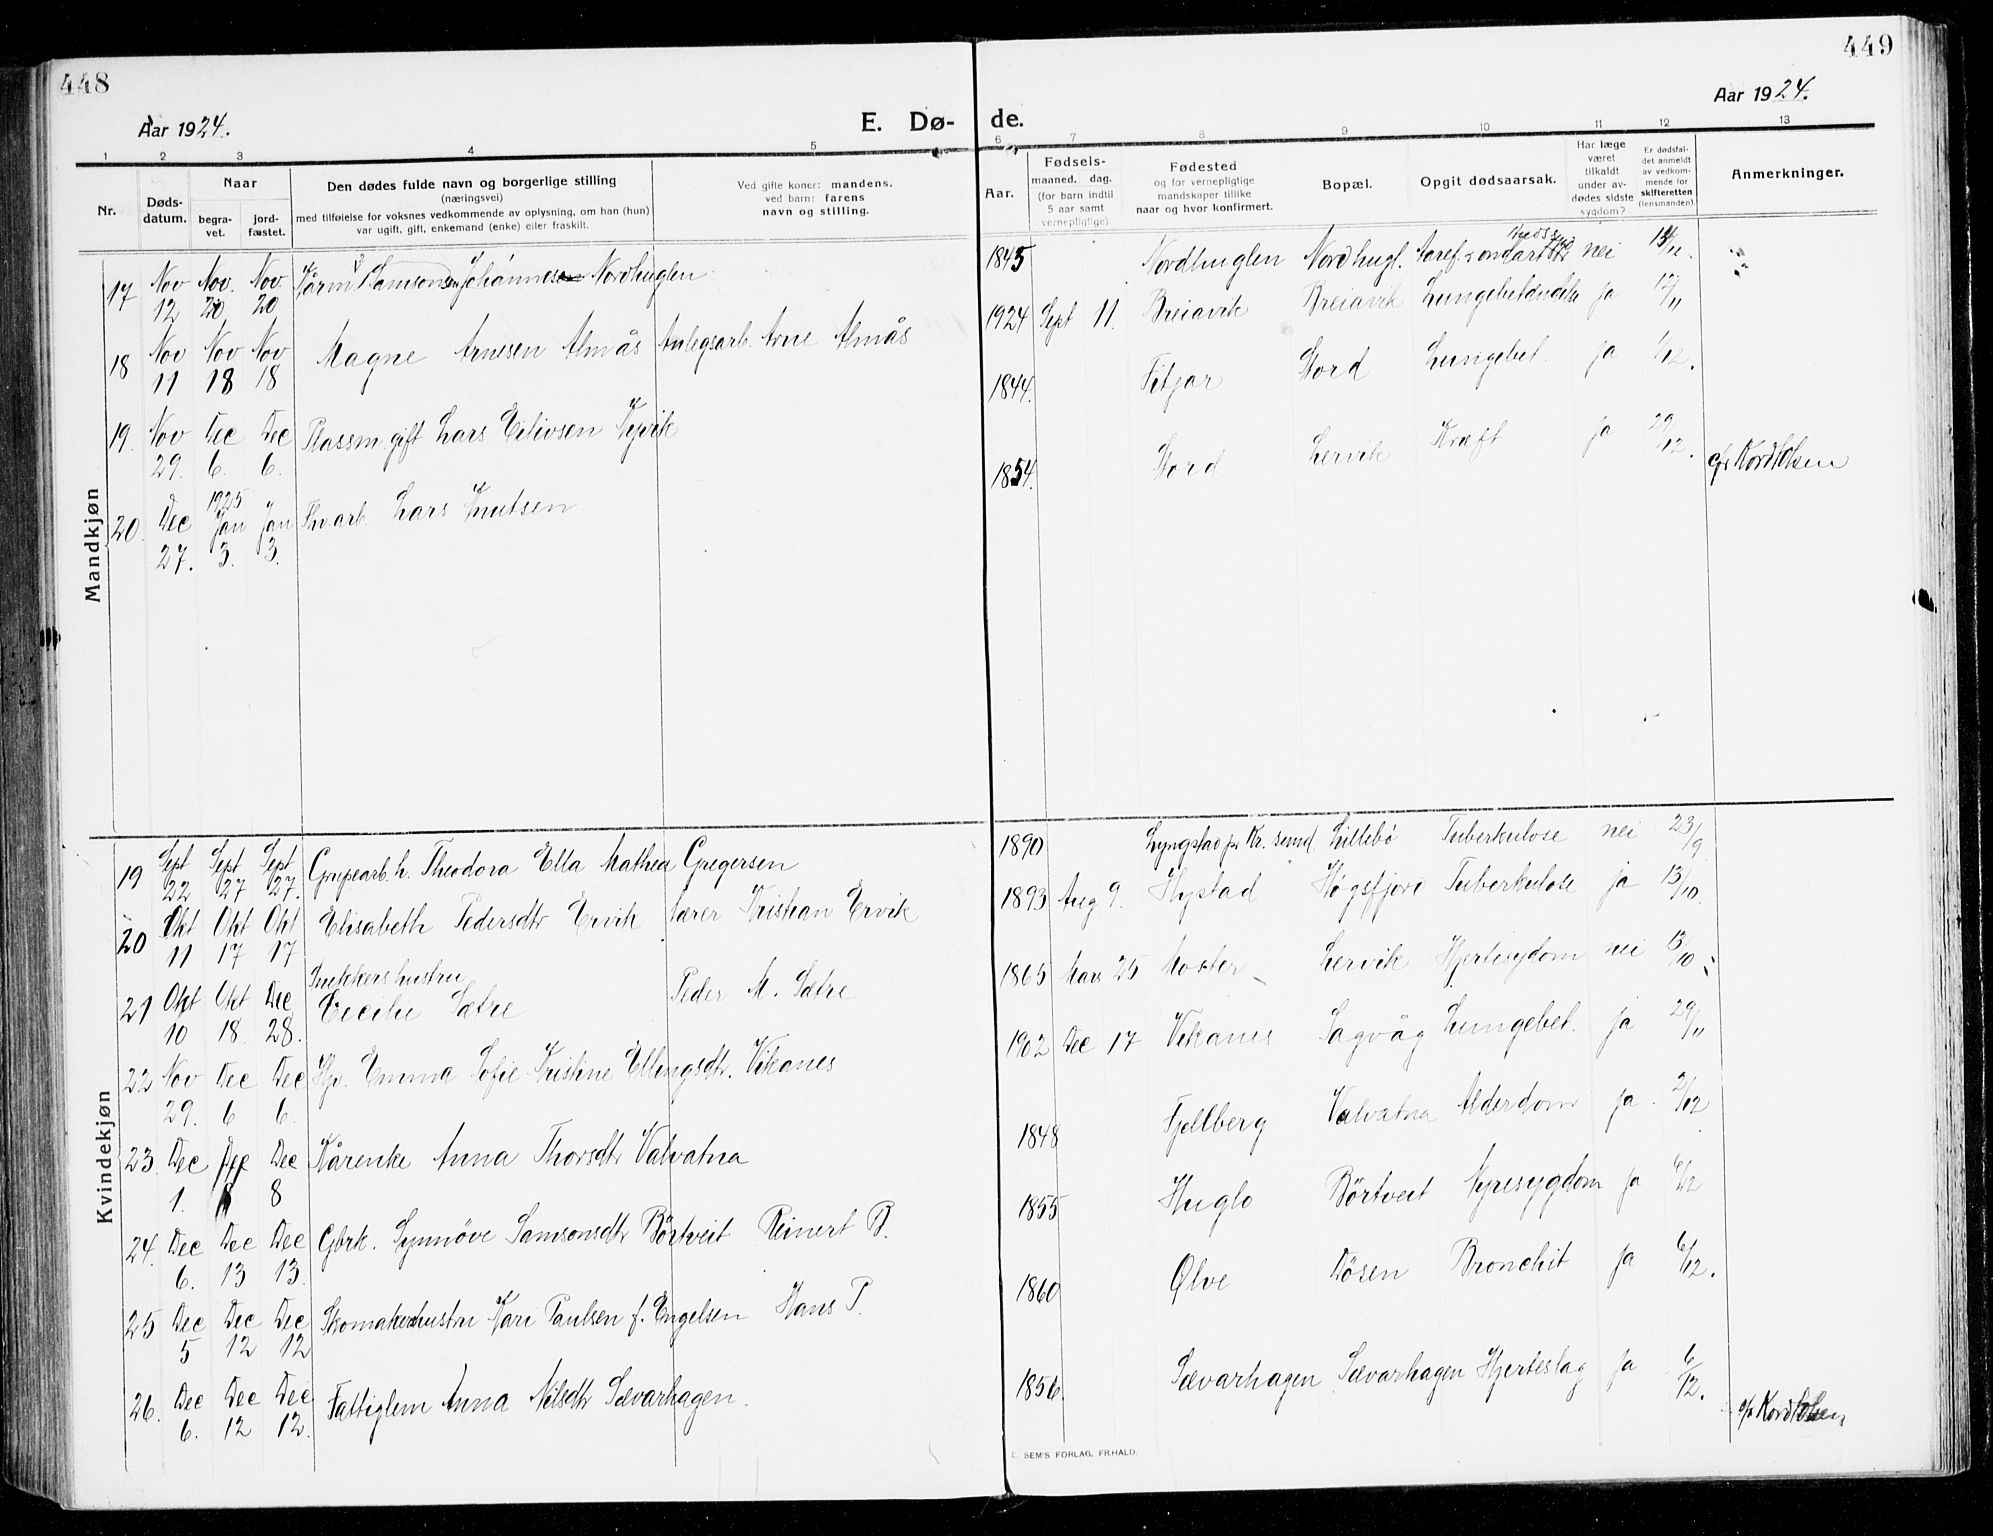 448
449
Aar 1924.
E. Dø-
de.
Aar 1924.
1 2 3 4 5 6 7 8 9 10 11 12 13
Nr.
Døds-
datum.
Naar
begra-
vet.
jord-
fæstet.
Den dødes fulde navn og borgerlige stilling
(næringsvei)
med tilføielse for voksnes vedkommende av oplysning, om han (hun)
var ugift, gift, enkemand (enke) eller fraskilt.
Ved gifte koner: mandens,
ved barn: farens
navn og stilling.
Aar.
Fødsels-
maaned. dag.
(for barn indtil
5 aar samt
vernepligtige)
Fødested
og for vernepligtige
mandskaper tillike
naar og hvor konfirmert.
Bopæl.
Opgit dødsaarsak.
Har læge
været
tilkaldt
under av-
dødes sidste
sygdom?
Er dødsfal-
det anmeldt
av vedkom-
mende for
skifteretten
(lensmanden).
Anmerkninger.
Mandkjøn
17 Nov 12 Nov. 20 Nov 20 Samsonsen Johannesen Nordhuglen 1845 Nordhuglen Nordhugl. nei 14/12.
18 Nov 11 Nov 18 Nov 18 Magne Arnesen Almås Anlegsarb. Arne Almås 1924 Sept 11. Breiavik Breiavik Lungebetændelse ja 12/11
19. Nov 29. Dec 6. Dec 6. Plassm. gift Lars Eilivsen 1844. Fitjar Stord Lungebet. ja 1/12.
20. Dec 27. 1925 Jan 3. Jan 3. Lars Knutsen 1854. Stord Lervik Kræft ja 29/12.
Kvindekjøn
19 Sept 22 Sept 27 Sept 27. Grupearb. h. Theodora Ella Mathea Gregersen 1890 Lyngstad pr Kr. sund Lillebø Tuberkulose nei 23/9
20 Okt 11 Okt 17 Okt 17 Elisabeth Pedersdtr Ervik lærer Kristian Ervik 1893 Aug 9. Hystad Høgsfjord Tuberkulose ja 13/10.
21 Okt 10 Okt 18. Dec 28. Snekkers hustru Cecilie Sætre Peder M. Sætre 1865 Mars 25 Moster Lervik Hjertesygdom nei 13/10
22 Nov 29. Dec 6 Dec 6. Hjv. Emma Sofie Kristine Ellingsdtr. Vikanes 1902 Dec 17 Vikanes Sagvåg Lungebet. ja 29/11
23. Dec 1. Dec 8 Dec 8 Kårenke Anna Thorsdtr Valvatna 1848 Fjellberg Valvatna Alderdom ja. 2/12
24. Dec 6. Dec 13 Dec 13. Gbrk. Synnöve Samsonsdtr Börtveit Reinert B. 1855 Huglo Börtveit Nyresygdom ja 6/12
25 Dec 5 Dec 12 Dec 12 Skomakerhustru Kari Paulsen f. Engelsen Hans P. 1860 Ølve Døsen Bronchit ja 6/12.
26. Dec 6. Dec 12 Dec 12. Fattiglem Anna Nilsdtr Sævarhagen. 1856. Sævarhagen Sævarhagen Hjerteslag ja 6/12.
E. SEM'S FORLAG, FR.HALD.